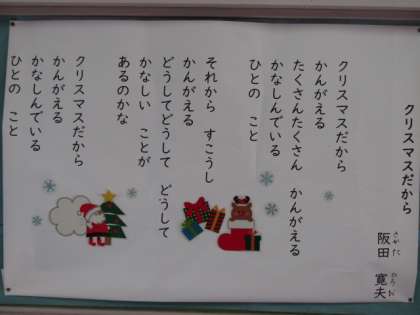 クリスマスだから
さかた ひろお
阪田 寛夫
クリスマスだから
かんがえる
たくさんたくさん かんがえる
かなしんでいる
ひとの こと
それから すこうし
かんがえる
どうしてどうして どうして
かなしい ことが
あるのかな
クリスマスだから
かんがえる
かなしんでいる
ひとの こと